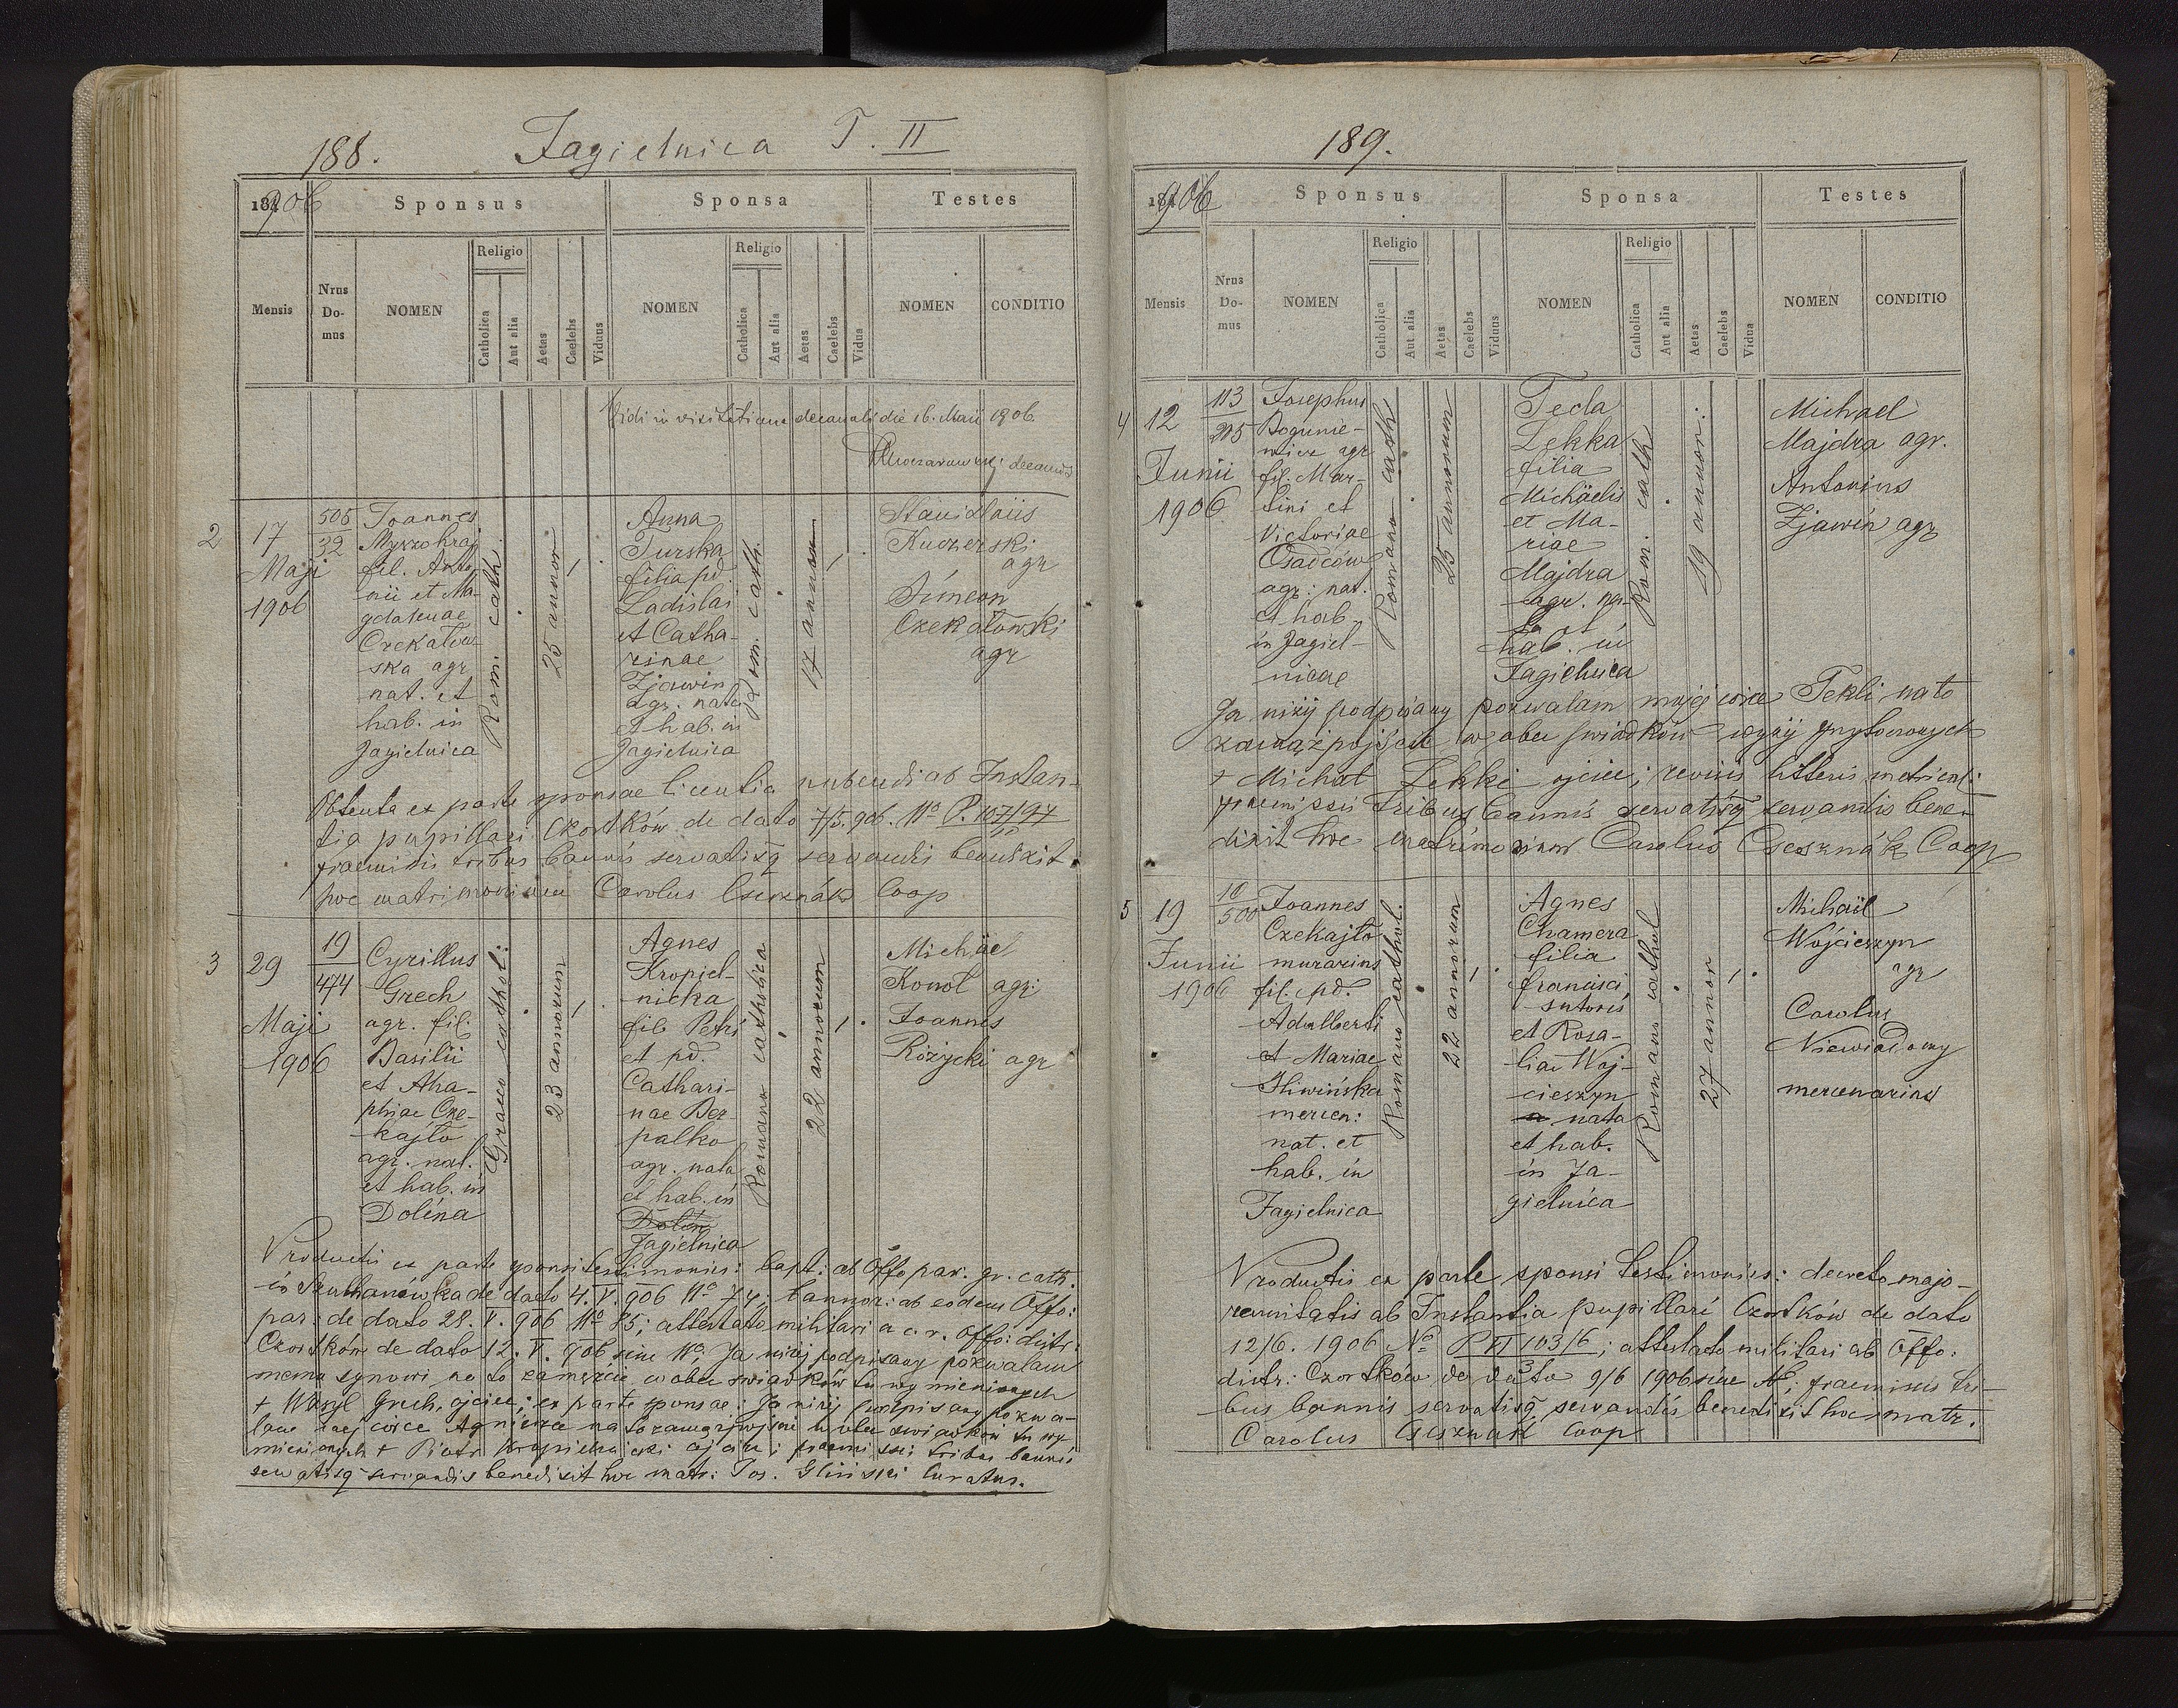 188. Jagielnica T. II
1906
Sponsus Sponsa Testes
Mensis Nrus Do-mus NOMEN Religio Catholica Aut alia Aetas Caelebs Viduus NOMEN Religio Catholica Aut alia Aetas Caelebs Vidua NOMEN CONDITIO
Vidi in visitatione decanali die 16. Maii 1906
decanus
2
17
Maji
1906
505
32
Joannes
fil. Anto-
nii et Ma-
gdalenae
Czekałow-
ska agr
nat. et
hab. in
Jagielnica
Rom. cath.
25 annor
1
Anna
Turska
filia pd.
Ladislai
et Catha-
rinae
Zjawin
agr. nata
et hab. in
Jagielnica
Rom. cath.
17 annor
1
Stanislaus
Kuczerski
agr
Simeon
Czekałowski
agr
Obtenta ex parte sponsae licentia nubendi ab Instan-
tia pupillari Czortków de dato 7/5. 906. No P. 107/97
praemissis tribus bannis servatisq servandis benedixit
hoc matrimonium Carolus Csesznák Coop
3
29
Maji
1906
19
474
Cyrillus
Grech
agr. fil.
Basilii
et Aha-
phiae Cze-
kajło
agr. nat.
et hab. in
Dolina
Graeco cathol:
23 annorum
1
Agnes
Kropiel-
nicka
fil. Petri
et pd.
Cathari-
nae Der-
palko
agr. nata
et hab. in
Dolina
Jagielnica
Romano catholica
22 annorum
1
Michäel
Konol agr.
Joannes
Różycki agr
Productis ex parte sponsi testimoniis: bapt: ab Offo par. gr. cath.
in de dato 4. V. 906 No 74; bannor: ab eodem Offo:
par: de dato 28. V. 906 No 85; attestato militari a c. r. Offo: distr:
Czortków de dato 12. V. 906 sine No; Ja niżej podpisany pozwalam
memu synowi na to zamężcie wobec świadków tu wymienionych
+ Wasyl Grech, ojciec; ex parte sponsae: Ja niżej podpisany pozwa-
lam mej córce Agnieszce na to zamążpójście wobec świadków tu wy-
mienionych + Piotr Kropielnicki ojciec; praemissis tribus bannis
servatisq servandis benedixit hoc matr: Jos. Curatus.
189.
1906
Sponsus Sponsa Testes
Mensis Nrus Do-mus NOMEN Religio Catholica Aut alia Aetas Caelebs Viduus NOMEN Religio Catholica Aut alia Aetas Caelebs Vidua NOMEN CONDITIO
4
12
Junii
1906
113
205
Josephus
Bogunie-
wicz agr
fil. Mar-
tini et
Victoriae
Osadców
agr: nat.
et hab.
in Jagiel-
nicae
Romano cath
25 annorum
Tecla
Lekka
filia
Michäelis
et Ma-
riae
Majdra
agr. na-
ta et
hab. in
Jagielnica
Rom. cath
19 annor.
Michael
Majdra agr.
Antonius
Zjawin agr
Ja niżij podpisany pozwalam mojej córce Tekli na to
zamążpójście wobec świadków wyżij przytoczonych
+ Michał Lekki ojciec; revisis litteris metricali:
praemissis tribus bannis servatisq servandis bene-
dixit hoc matrimonium Carolus Csesznák Coop
5
19
Junii
1906
10
500
Joannes
Czekajło
murarius
fil. pd.
Adalberti
et Mariae
Hliwińska
mercen:
nat. et
hab. in
Jagielnica
Romano cathol.
22 annorum
1
Agnes
Chamera
filia
Francisci
sutoris
et Rosa-
liae Woj-
cieszyn
nata
et hab.
in Ja-
gielnica
Romano cathol
27 annor
1
Michäil
Wojcieszyn
agr
Carolus
Niewiadomy
mercenarius
Productis ex parte sponsi testimoniis: decreto majo-
rennitatis ab Instantia pupillari Czortków de dato
12/6. 1906 No P VI 103/6; attestato militari ab Offo:
distr: Czortków de dato 9/6 1906 sine No; praemissis tri-
bus bannis servatisq servandis benedixit hoc matr.
Carolus Csesznak Coop